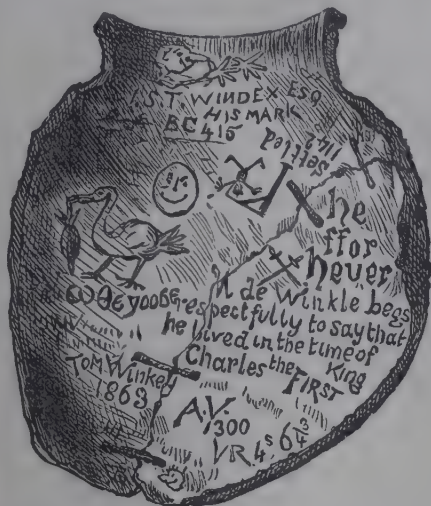 S.T. WINDEX ESQ
HIS MARK
BC 415
Settled
he
ffor
hever
de Winkle begs
respectfully to say that
he lived in the time of
Charles the FIRST King
TOM Winkey
1863
A.V.
1300
VR 4s 6¾